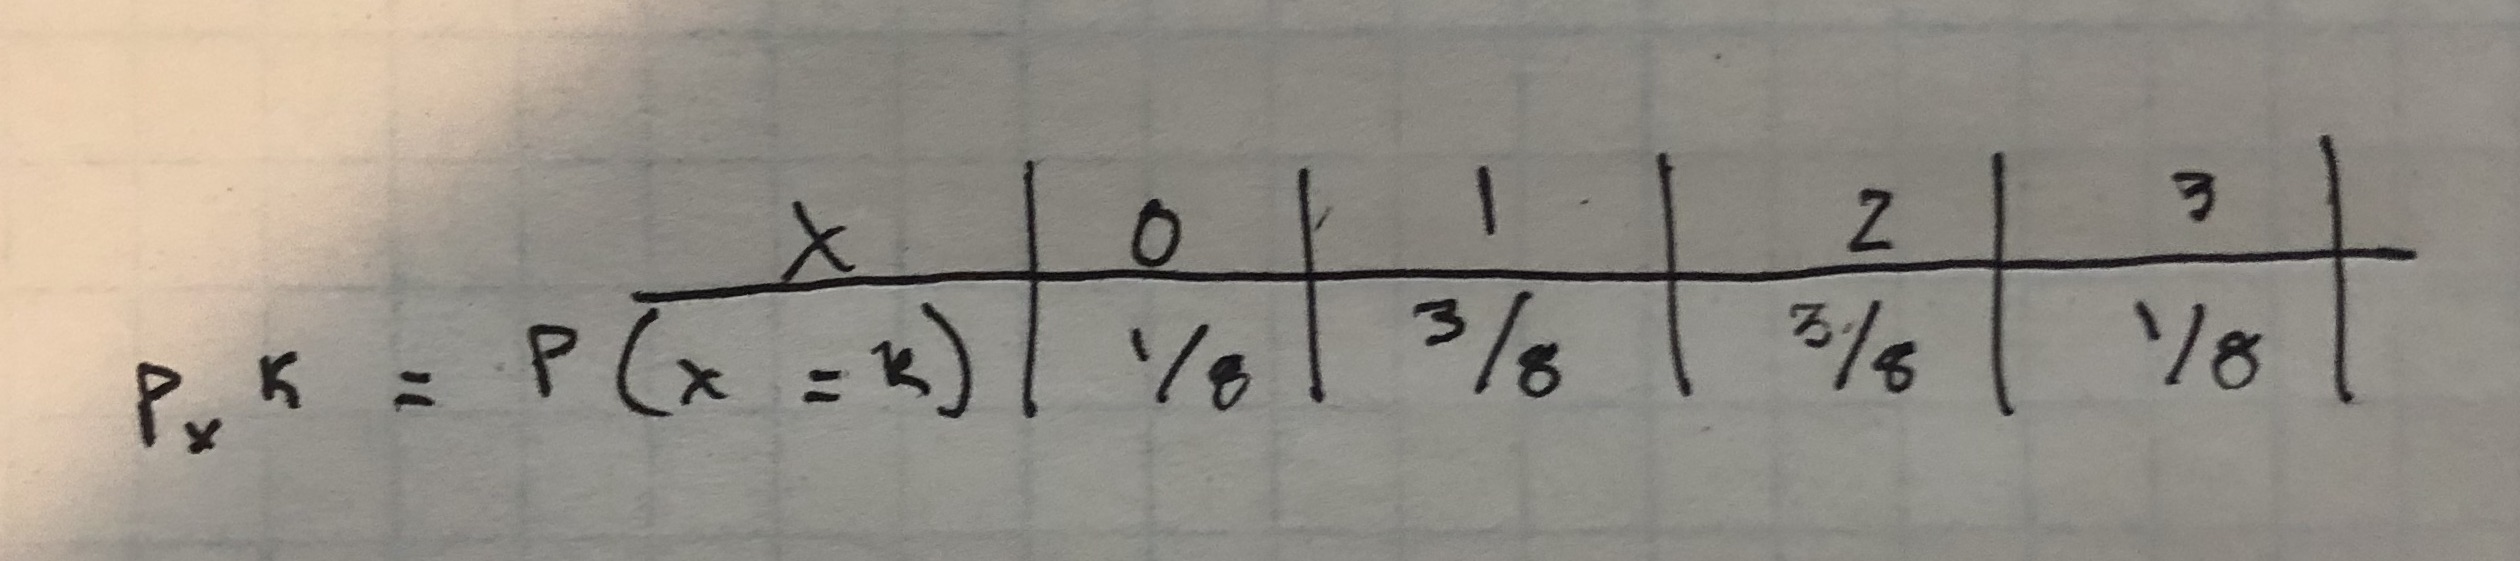 X | 0 | 1 | 2 | 3 |
Pₓ K = P(x = K) | 1/8 | 3/8 | 3/8 | 1/8 |